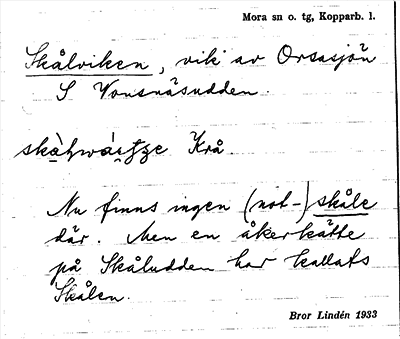 Mora sn o. tg, Kopparb. l.
Skålviken, vik av Orsasjön
S Vonsnäsudden.
Krå.
Nu finns ingen (not-)skåle
där. Men en åkerkätte
på Skåludden har kallats
Skålen.
Bror Lindén 1933